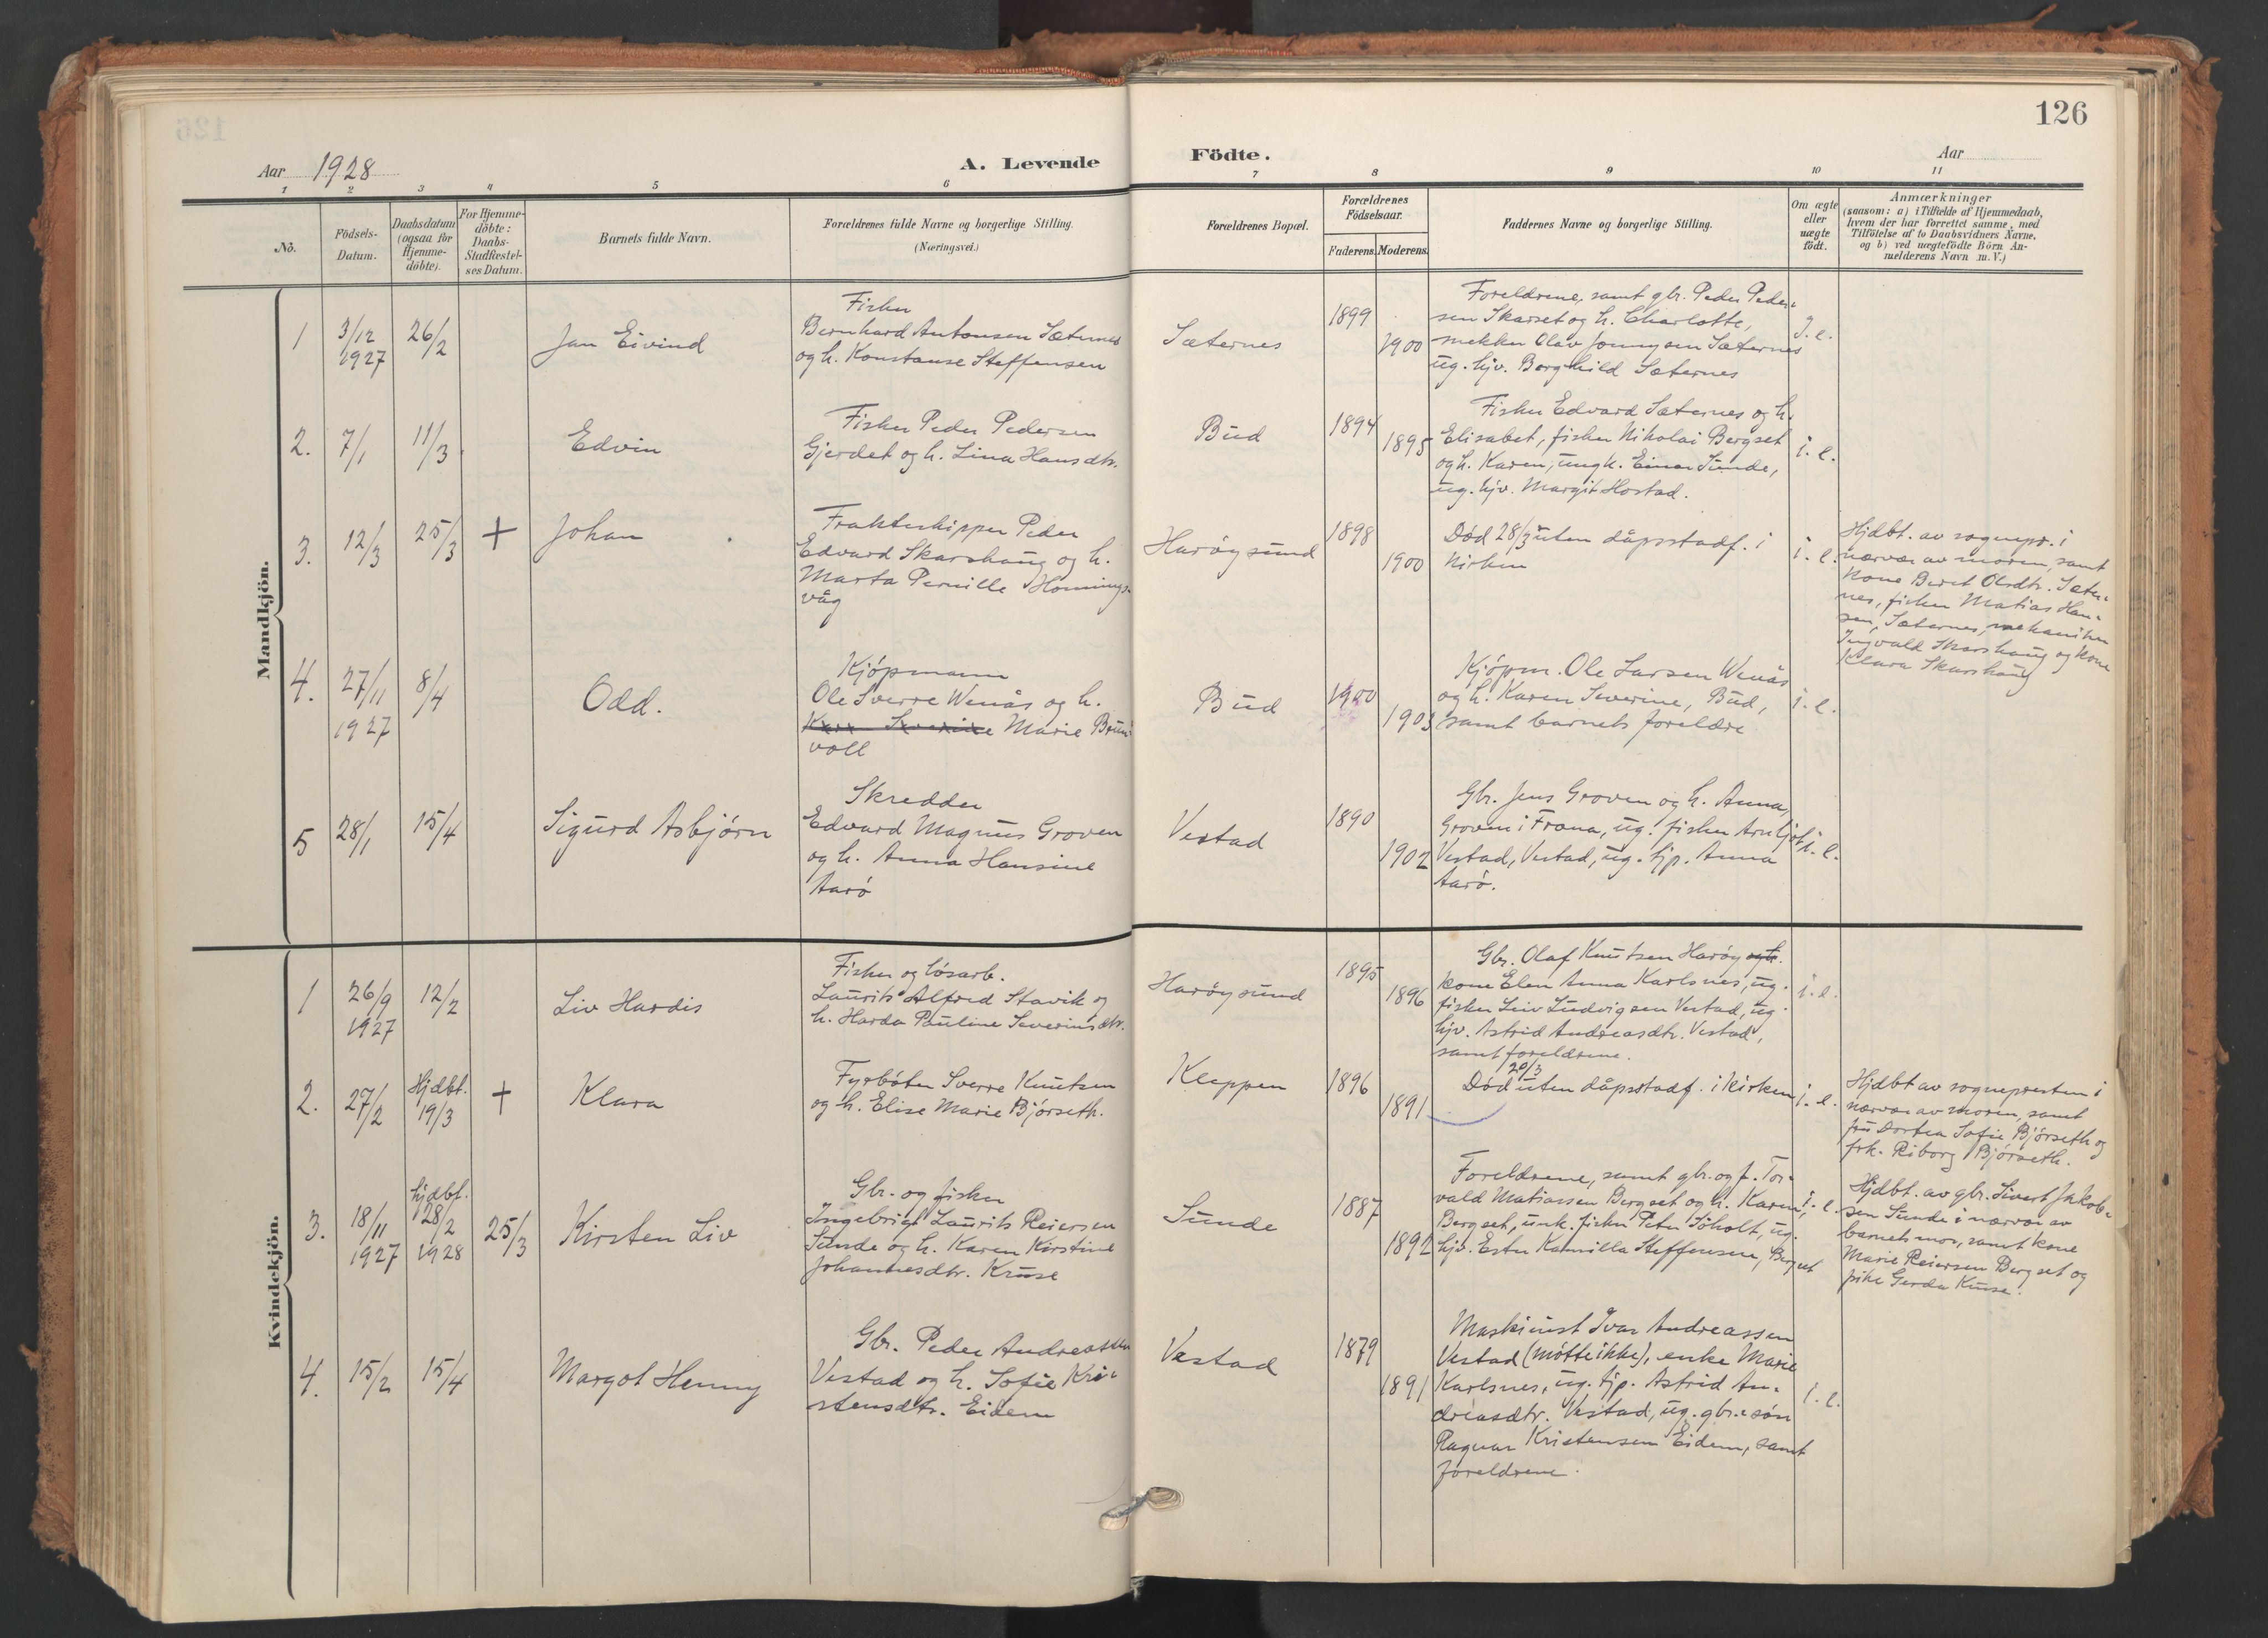 126
Aar 1928
A. Levende Födte.
Aar
1 2 3 4 5 6 7 8 9 10 11
No.
Födsels-
Datum.
Daabsdatum
(ogsaa for
Hjemme-
døbte).
For Hjemme-
døbte:
Daabs-
Stadfestel-
ses Datum.
Barnets fulde Navn.
Forældrenes fulde Navne og borgerlige Stilling.
(Næringsvei.)
Forældrenes Bopæl.
Forældrenes
Födselsaar.
Faderens. Moderens.
Faddernes Navne og borgerlige Stilling.
Om ægte
eller
uægte
født.
Anmærkninger
(saasom: a) i Tilfælde af Hjemmedaab,
hvem der har forrettet samme, med
Tilføielse af to Daabsvidners Navne,
og b) ved uægtefødte Börn An-
melderens Navn m. V.)
Mandkjön.
1
3/12
1927
26/2
Jan Eivind
Fisker
Bernhard Antonsen Sæternes
og h. Konstanse Steffensen
Sæternes
1899
1900
Foreldrene, samt gbr. Peder Peder-
sen Skarset og h. Charlotte,
snekker Olav Jonnysen Sæternes
ug. hjv. Borghild Sæternes
I. e.
2.
7/1
11/3
Edvin
Fisker Peder Pedersen
Gjerdet og h. Lina Hansdtr.
Bud
1894
1895
Fisker Edvard Sæternes og h.
Elisabet, fisker Nikolai Bergset
og h. Karen, ungk. Einar Sunde,
ug. hjv. Margit Hostad.
i. e.
3.
12/3
25/3
+
Johan
Frakteskipper Peder
Edvard Skarshaug og h.
Marta Pernille Honnings-
våg
Harøysund
1898
1900
Død 28/3 uten dåpsstadf. i
kirken
i. e.
Hjdbt. av sognepr. i
nærvær av moren, samt
kone Beret Olsdtr. Sæter-
nes, fisker Matias Han-
sen, Sæternes, mekaniker
Ingvald Skarshaug og kone
Klara Skarshaug
4.
27/11
1927
8/4
Odd.
Kjøpmann
Ole Sverre Wenås og h.
Karen Severine Marie Brun-
voll
Bud
1900
1903
Kjøpm. Ole Larsen Wenås
og h. Karen Severine, Bud,
samt barnets foreldre
i. e.
5
28/1
15/4
Sigurd Asbjørn
Skredder
Edvard Magnus Groven
og h. Anna Hansine
Aarø
Vestad
1890
1902
Gbr. Jens Groven og h. Anna,
Groven i Frana, ug. fisker Arnljot
Vestad, Vestad, ug. hjp. Anna
Aarø.
i. e.
Kvindekjön.
1
26/9
1927
12/2
Liv Hardis
Fisker og løsarb.
Laurits Alfred Stavik og
h. Harda Pauline Severinsdtr.
Harøysund
1895
1896
Gbr. Olaf Knutsen Harøy og h.
kone Elen Anna Karlsnes, ug.
fisker Leiv Ludvigsen Vestad, ug.
hjv. Astrid Andreasdtr. Vestad,
samt foreldrene.
i. e.
2.
27/2
Hjdbt.
19/3
+
Klara
Fyrbøter Sverre Knutsen
og h. Elise Marie Bjørseth.
Kleppen
1896
1891
20/3
Død uten dåpsstadf. i kirken
i. e.
Hjdbt av sognepresten i
nærvær av moren, samt
fru Dortea Sofie Bjørseth og
frk. Riborg Bjørseth.
3.
18/11
1927
hjdbt.
28/2
1928
25/3
Kirsten Liv
Gbr. og fisker
Ingebrigt Laurits Reiersen
Sunde og h. Karen Kirstine
Johannesdtr. Kruse
Sunde
1887
1892
Foreldrene, samt gbr. og f. Tor-
vald Matiassen Bergset og h. Karen,
Bergset, unk. fisker Peter Søholt, ug.
hjv. Ester Kamilla Steffensen, Bergset
i. e.
Hjdbt. av gbr. Sivert Jakob-
sen Sunde i nærvær av
barnets mor, samt kone
Marie Reiersen Bergset og
pike Gerda Kruse.
4.
15/2
15/4
Margot Henny
Gbr. Peder Andreassen
Vestad og h. Sofie Kri-
stensdtr. Eidem
Vestad
1879
1891
Maskinist Ivar Andreassen
Vestad (møtte ikke), enke Marie
Karlsnes, ug. hjp. Astrid An-
dreasdtr. Vestad, ug. gbr.-søn
Ragnar Kristensen Eidem, samt
foreldrene.
i. e.